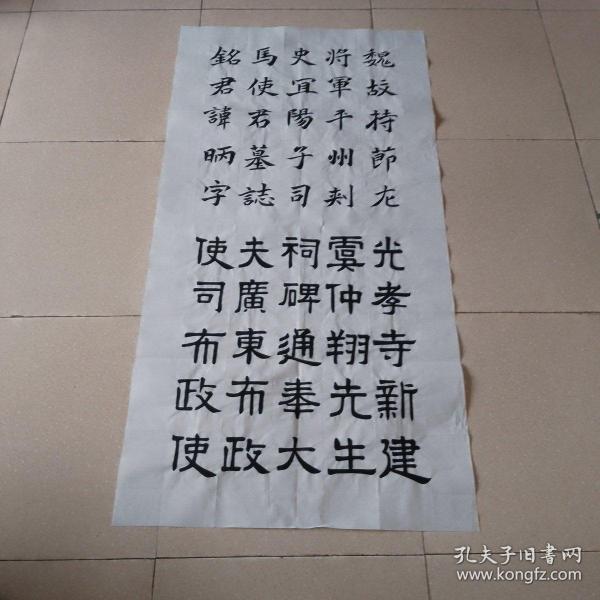 魏故持節左
将軍平州刾
史冝陽子司
馬使君墓誌
銘君諱昞字
光孝寺新建
虞仲翔先生
祠碑通奉大
夫廣東布政
使司布政使
孔夫子旧書网
www.kongfz.com